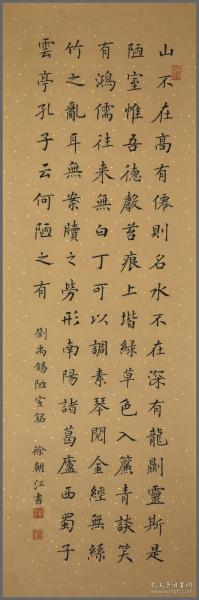 山不在高有僊則名水不在深有龍則靈斯是
陋室惟吾德馨苔痕上堦綠草色入簾青談笑
有鴻儒往来無白丁可以調素琴閱金經無絲
竹之亂耳無案牘之勞形南陽諸葛廬西蜀子
雲亭孔子云何陋之有
劉禹錫陋室銘 徐朝江書